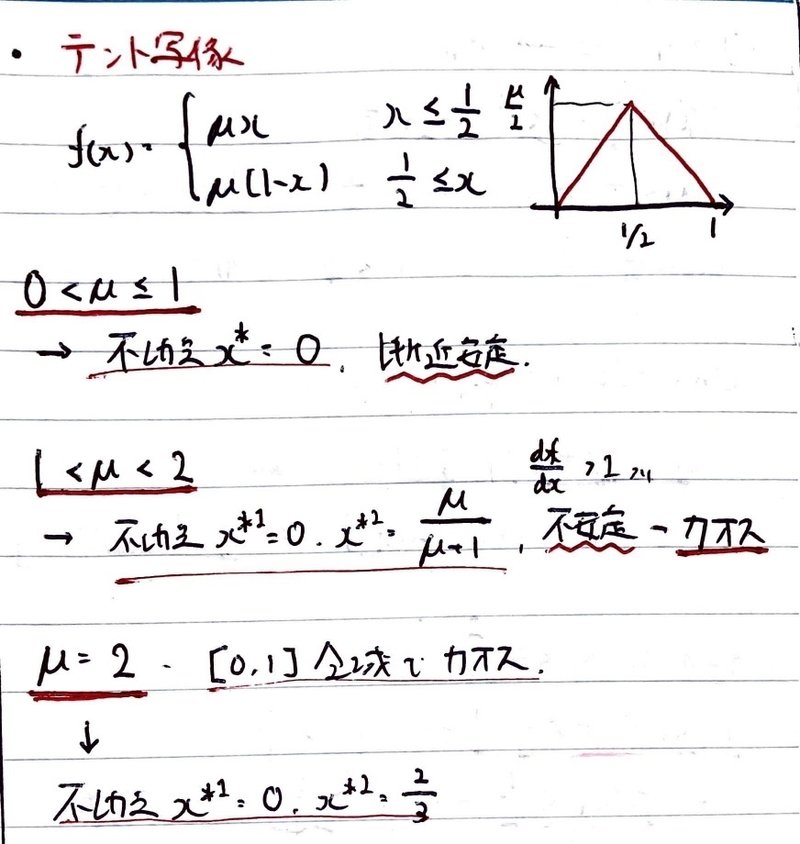 ・テント写像
f(x) = { μx x ≤ 1/2
μ(1-x) 1/2 ≤ x
μ/2
1/2 1
0 < μ ≤ 1
→ 不動点 x* = 0, 漸近安定.
1 < μ < 2
df/dx > 1
→ 不動点 x*1 = 0. x*2 = μ/(μ+1), 不安定 - カオス
μ = 2 - [0,1] 全域で カオス.
↓
不動点 x*1 = 0. x*2 = 2/3